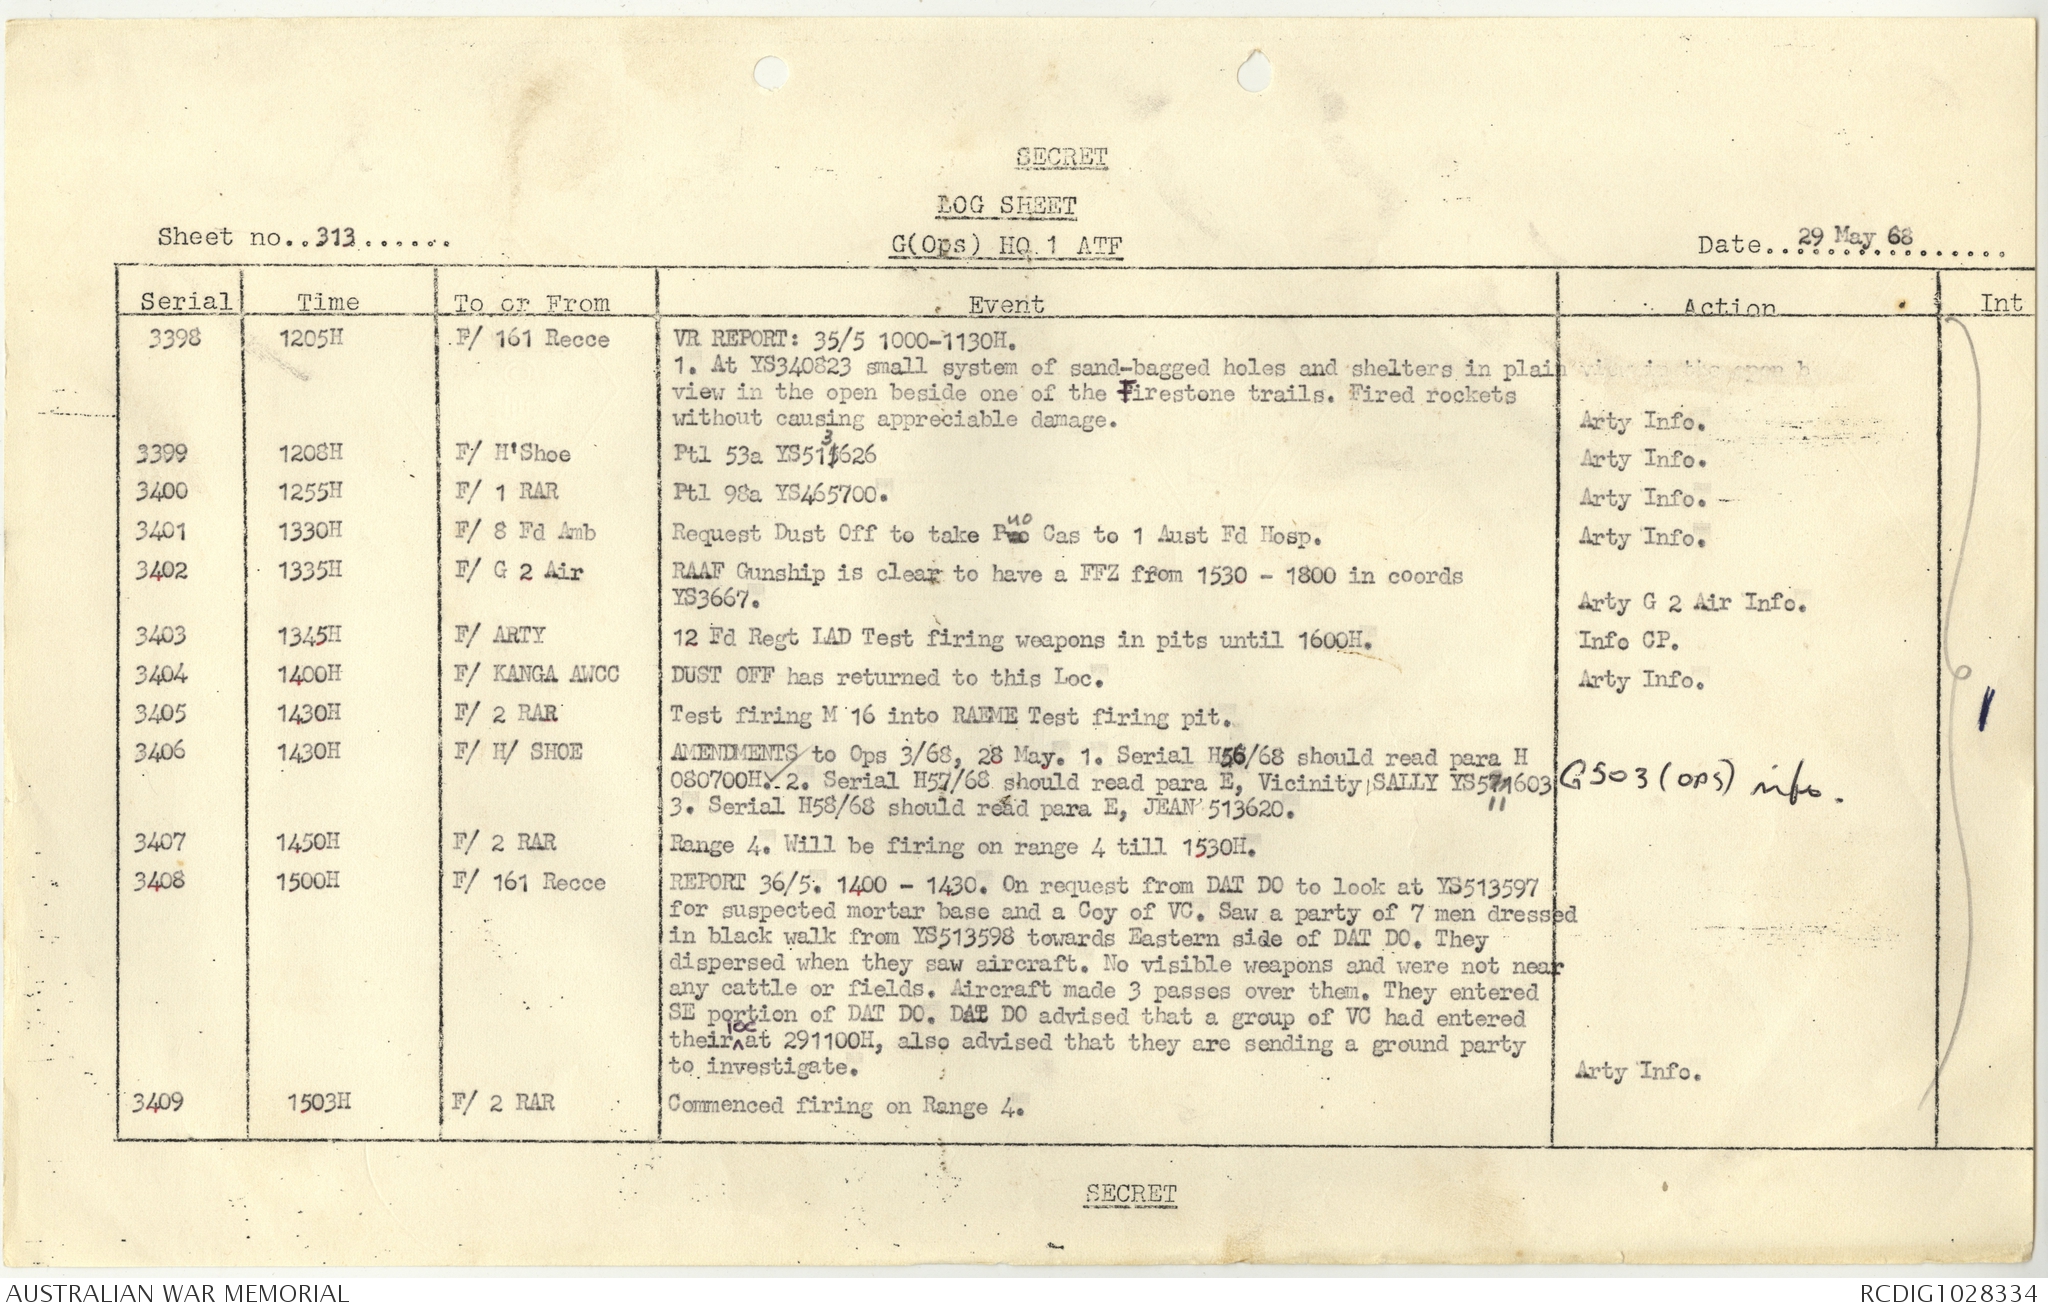 SECRET
LOG SHEET
Sheet no..313......
G(Ops) HQ 1 ATF
Date..29 May 68
Serial Time To or From Event Action Int
3398 1205H F/ 161 Recce VR REPORT: 35/5 1000-1130H.
1. At YS340823 small system of sand-bagged holes and shelters in plain
view in the open beside one of the Firestone trails. Fired rockets
without causing appreciable damage. Arty Info.
3399 1208H F/ H'Shoe Ptl 53a YS513626 Arty Info.
3400 1255H F/ 1 RAR Ptl 98a YS465700. Arty Info.
3401 1330H F/ 8 Fd Amb Request Dust Off to take PUO Cas to 1 Aust Fd Hosp. Arty Info.
3402 1335H F/ G 2 Air RAAF Gunship is clear to have a FFZ from 1530 - 1800 in coords
YS3667. Arty G 2 Air Info.
3403 1345H F/ ARTY 12 Fd Regt LAD Test firing weapons in pits until 1600H. Info CP.
3404 1400H F/ KANGA AWCC DUST OFF has returned to this Loc. Arty Info.
3405 1430H F/ 2 RAR Test firing M 16 into RAEME Test firing pit.
3406 1430H F/ H/ SHOE AMENDMENTS to Ops 3/68, 28 May. 1. Serial H56/68 should read para H
080700H. 2. Serial H57/68 should read para E, Vicinity SALLY G503 (OPS) info.
3. Serial H58/68 should read para E, JEAN 513620.
3407 1450H F/ 2 RAR Range 4. Will be firing on range 4 till 1530H.
3408 1500H F/ 161 Recce REPORT 36/5. 1400 - 1430. On request from DAT DO to look at YS513597
for suspected mortar base and a Coy of VC. Saw a party of 7 men dressed
in black walk from YS513598 towards Eastern side of DAT DO. They
dispersed when they saw aircraft. No visible weapons and were not near
any cattle or fields. Aircraft made 3 passes over them. They entered
SE portion of DAT DO. DAT DO advised that a group of VC had entered
their loc at 291100H, also advised that they are sending a ground party
to investigate. Arty Info.
3409 1503H F/ 2 RAR Commenced firing on Range 4.
SECRET
AUSTRALIAN WAR MEMORIAL
RCDIG1028334